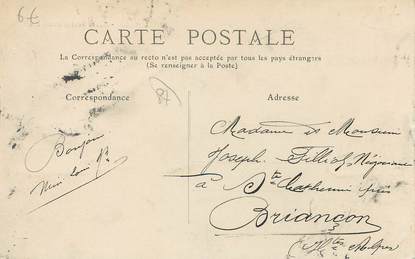 6€
CARTE POSTALE
La Correspondance au recto n'est pas acceptée par tous les pays étrangers
(Se renseigner à la Poste)
Correspondance
87
Adresse
Bonjour
Madame et Monsieur
Joseph Négociant
à Ste Catherine près
Briançon
Htes Alpes